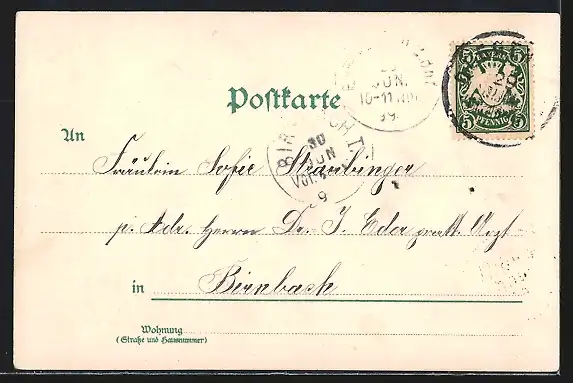 BAYERN
5 5
5 PFENNIG 5
JUN.
10-11
99.
Postkarte
BIRNBACH
30
JUN
Vor.
9
An
Fräulein Sofie Straubinger
p. Adr. Herrn Dr. J. Eder prakt. Arzt
in Birnbach
Wohnung
(Straße und Hausnummer)